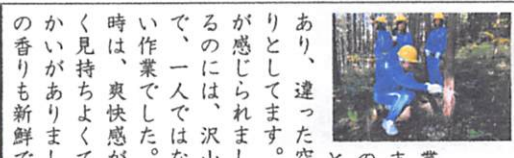 業
の
と
あり、違った空
りとしてます。
が感じられまし
るのには、沢山
で、一人ではな
い作業でした。
時は、爽快感が
く見持ちよくて
かいがありまし
の香りも新鮮で